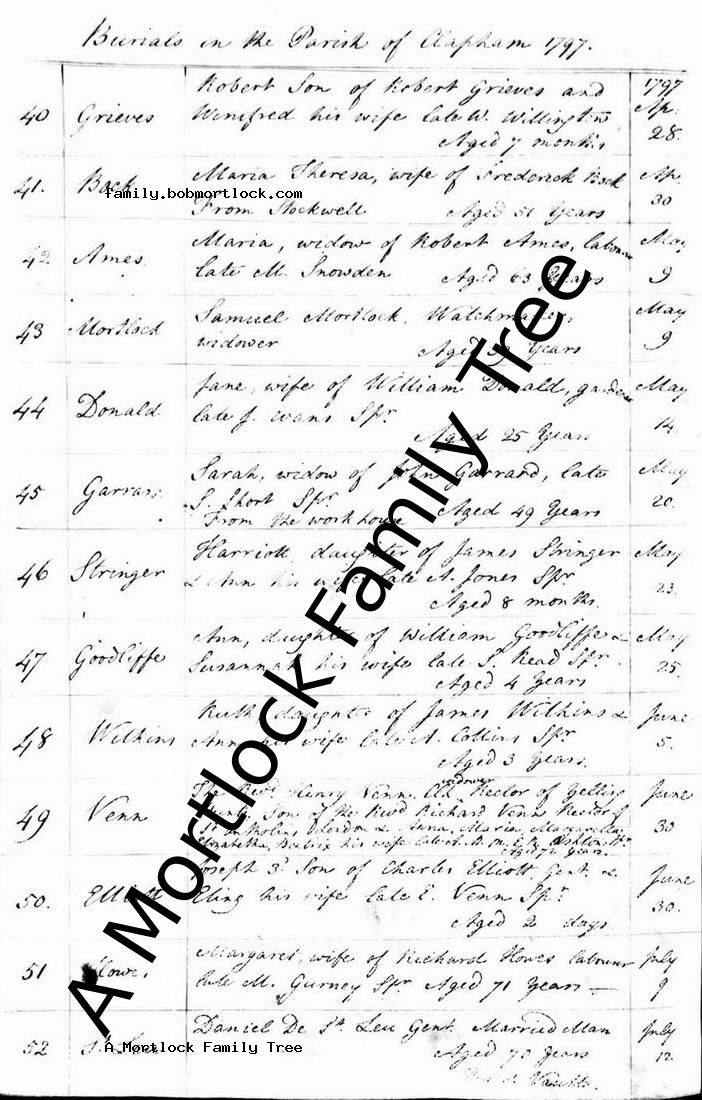 Burials in the Parish of Clapham 1797.
1797
40 Grieves Robert Son of Robert Grieves and Ap.
Winifred his wife late W. Willington 28.
Aged 7 months
41. Back Maria Theresa, wife of Frederick Back Ap.
family.bobmortlock.com
From Stockwell Aged 51 Years 30
42 Ames. Maria, widow of Robert Ames, labourer May
late M. Snowden Aged 63 Years 9
43 Mortlock Samuel Mortlock. Watchmaker, May
widower Aged Years 9
44 Donald Jane, wife of William Donald, gardener May
late J. Evans Spr. Aged 25 Years 14.
45 Garrard Sarah, widow of John Garrard, late May
S. Short Spr. Aged 49 Years 20.
From the workhouse
46 Stringer Harriott daughter of James Stringer May
& Ann his wife late A. Jones Spr. 23.
Aged 8 months.
47 Goodliffe Ann, daughter of William Goodliffe & May
Susannah his wife late S. Read Spr. 25.
Aged 4 Years
48 Wilkins Ruth, daughter of James Wilkins & June
Ann his wife late A. Collins Spr. 5.
Aged 3 Years.
widower
49 Venn The Revd. Henry Venn. Rector of Yelling June
Hunts, Son of the Revd Richard Venn Rector of 30
St. Antholins London & Anna Maria Margaretta
Elizabetha Beatrix his wife late A. M. M. E. B. Ashton Spr.
Aged 72 Years.
50. Elliott Joseph 3d. Son of Charles Elliott Gent. & June
Eling his wife late E. Venn Spr. 30.
Aged 2 days.
51 Howes Margaret, wife of Richard Howes labourer July
late M. Gurney Spr. Aged 71 Years 9
52 St. Leu Daniel De St. Leu Gent. Married Man July
A Mortlock Family Tree
Aged 70 Years 12.
A Mortlock Family Tree